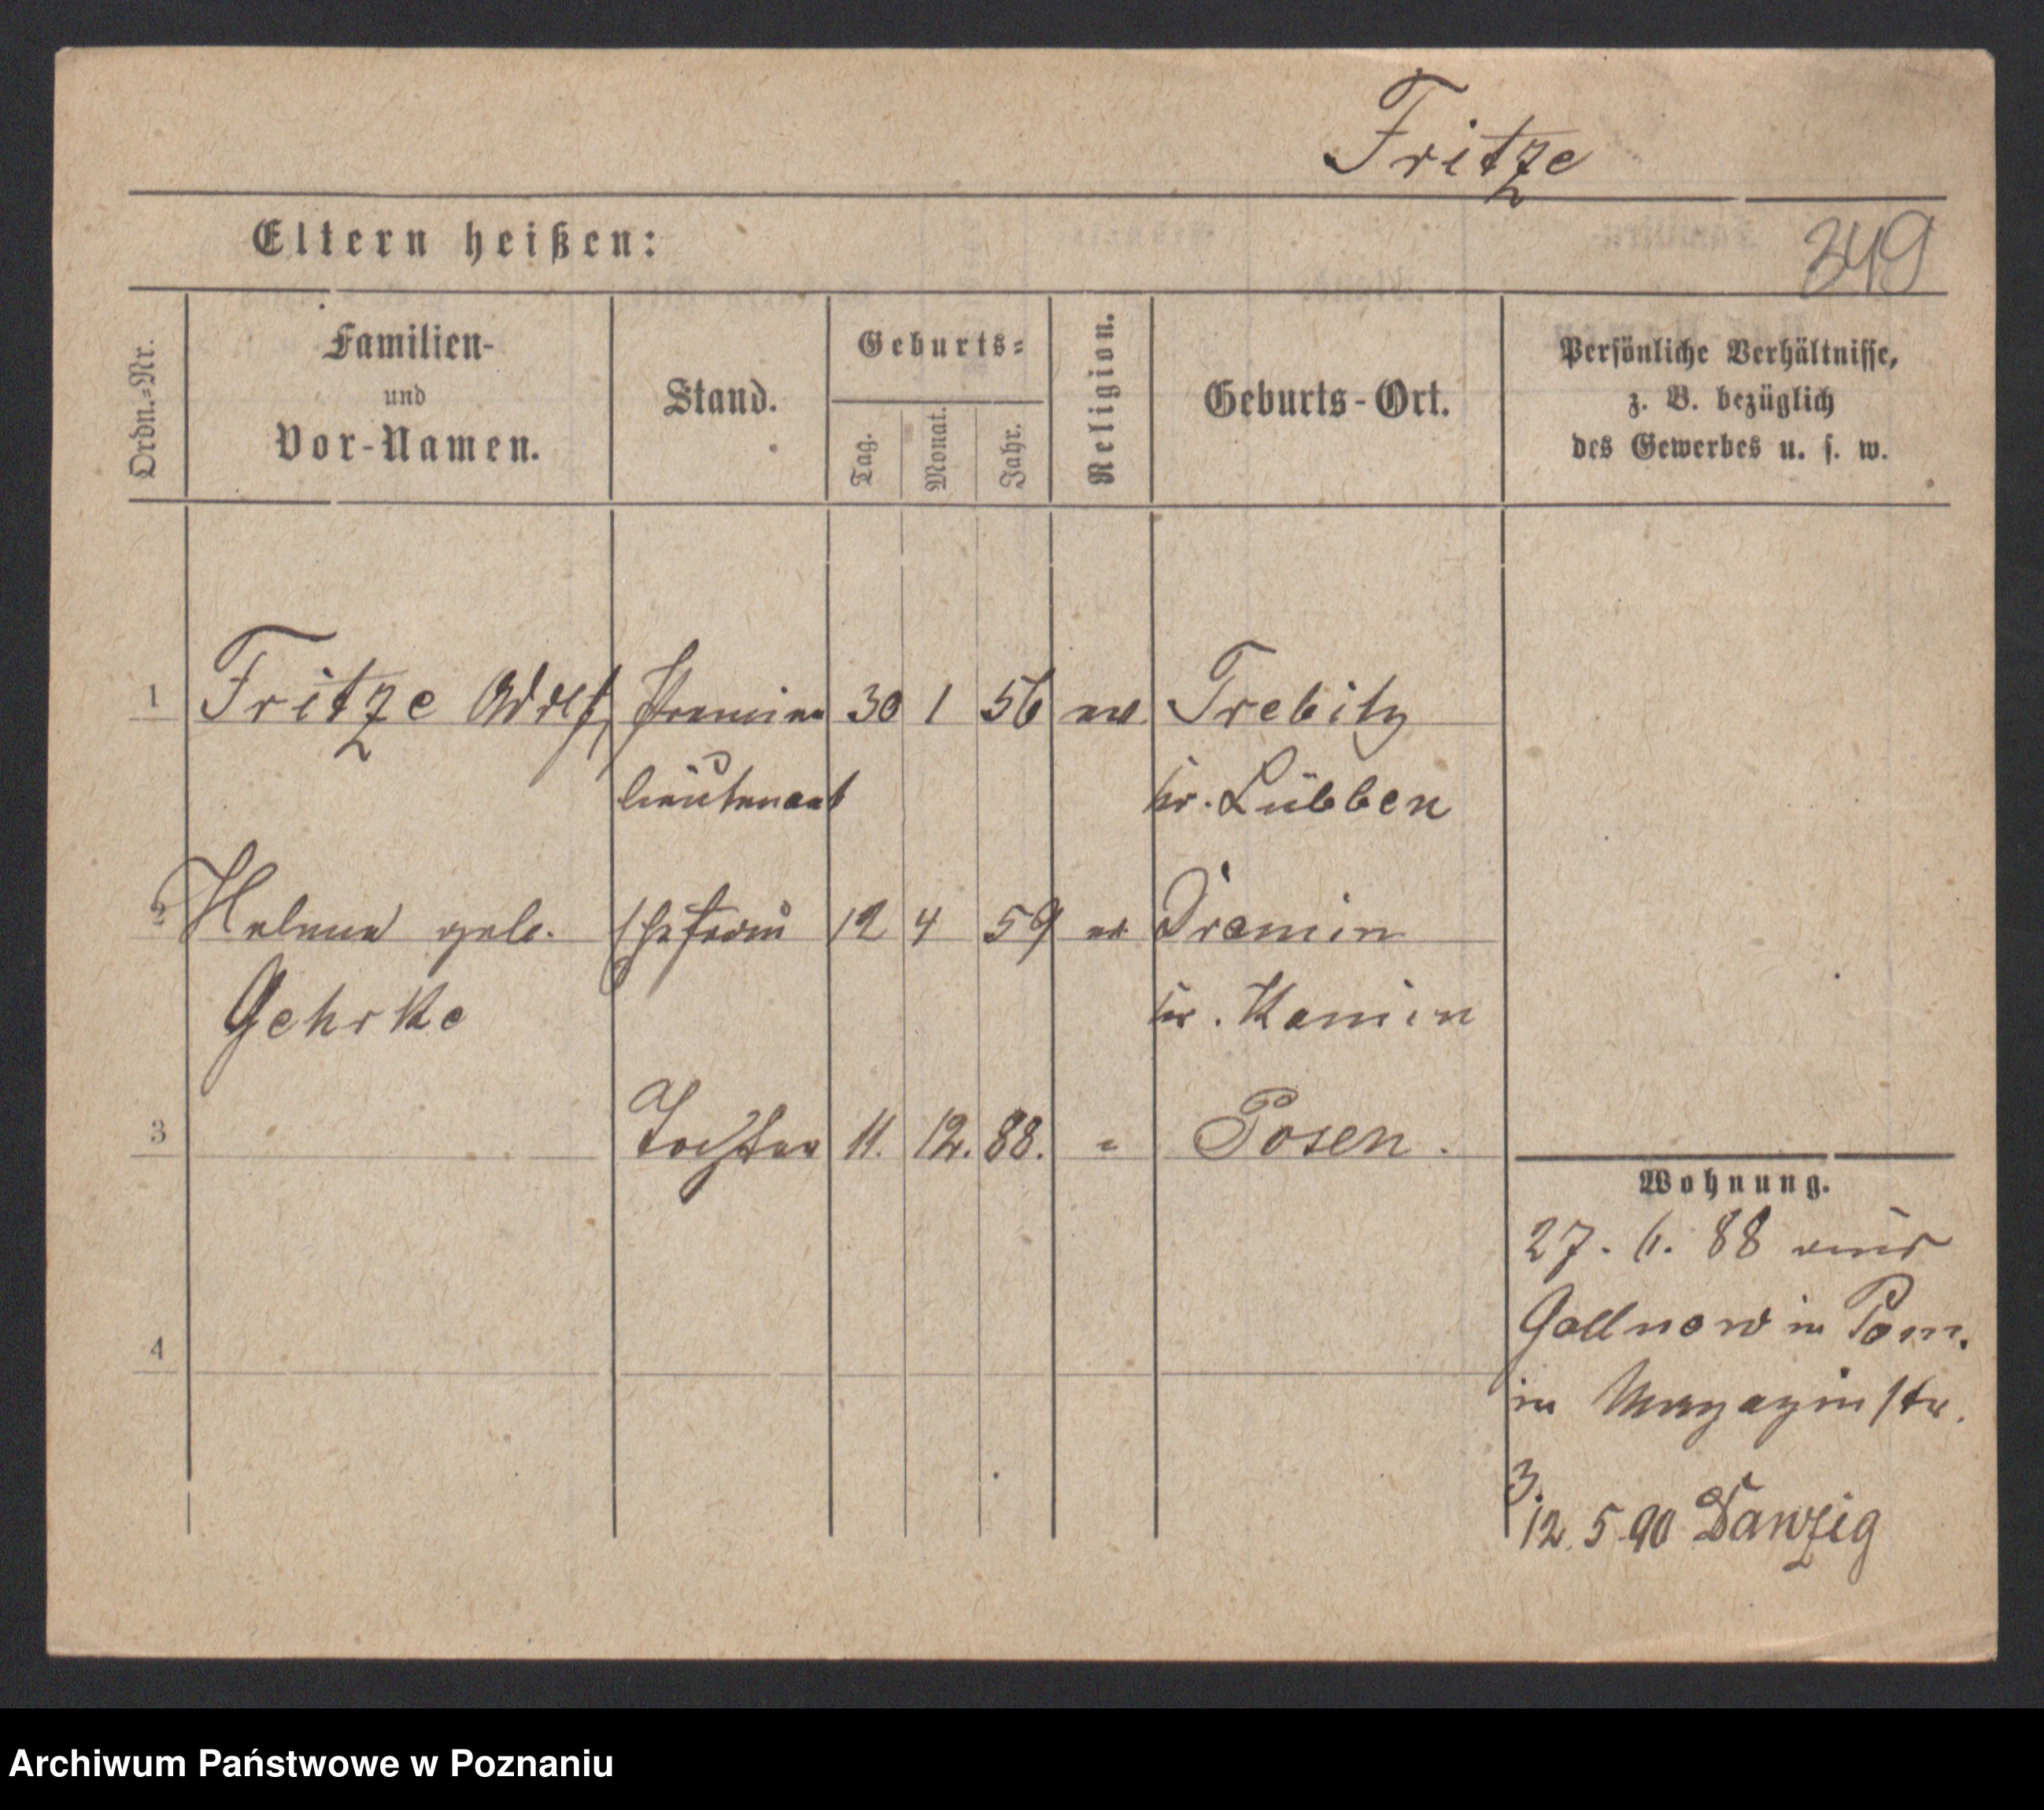 Fritze
Eltern heißen:
349
Ordn.=Nr.
Familien-
und
Vor-Namen.
Stand.
Geburts=
Tag.
Monat.
Jahr.
Religion.
Geburts-Ort.
Persönliche Verhältnisse,
z. B. bezüglich
des Gewerbes u. s. w.
1 Fritze Adolf, Premier 30 1 56 ev. Trebitz
lieutenant Kr. Lübben
2 Helene geb. Ehefrau 12 4 59 ev. Dramin
Gehrke Kr. Kamin
3 Tochter 11. 12. 88. " Posen.
4
Wohnung.
27. 6. 88 aus
Gollnow in Pom.
in Magazinstr.
3.
12. 5. 90 Danzig
Archiwum Państwowe w Poznaniu